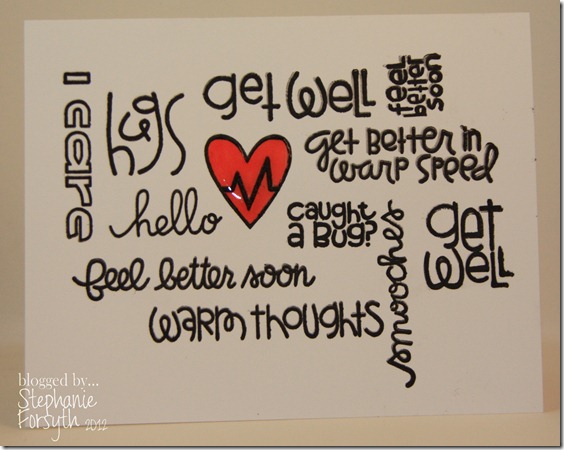 I care
hugs
get well
feel
better
soon
get better in
warp speed
hello
caught
a bug?
smooches
get
well
feel better soon
warm thoughts
blogged by...
Stephanie
Forsyth 2012